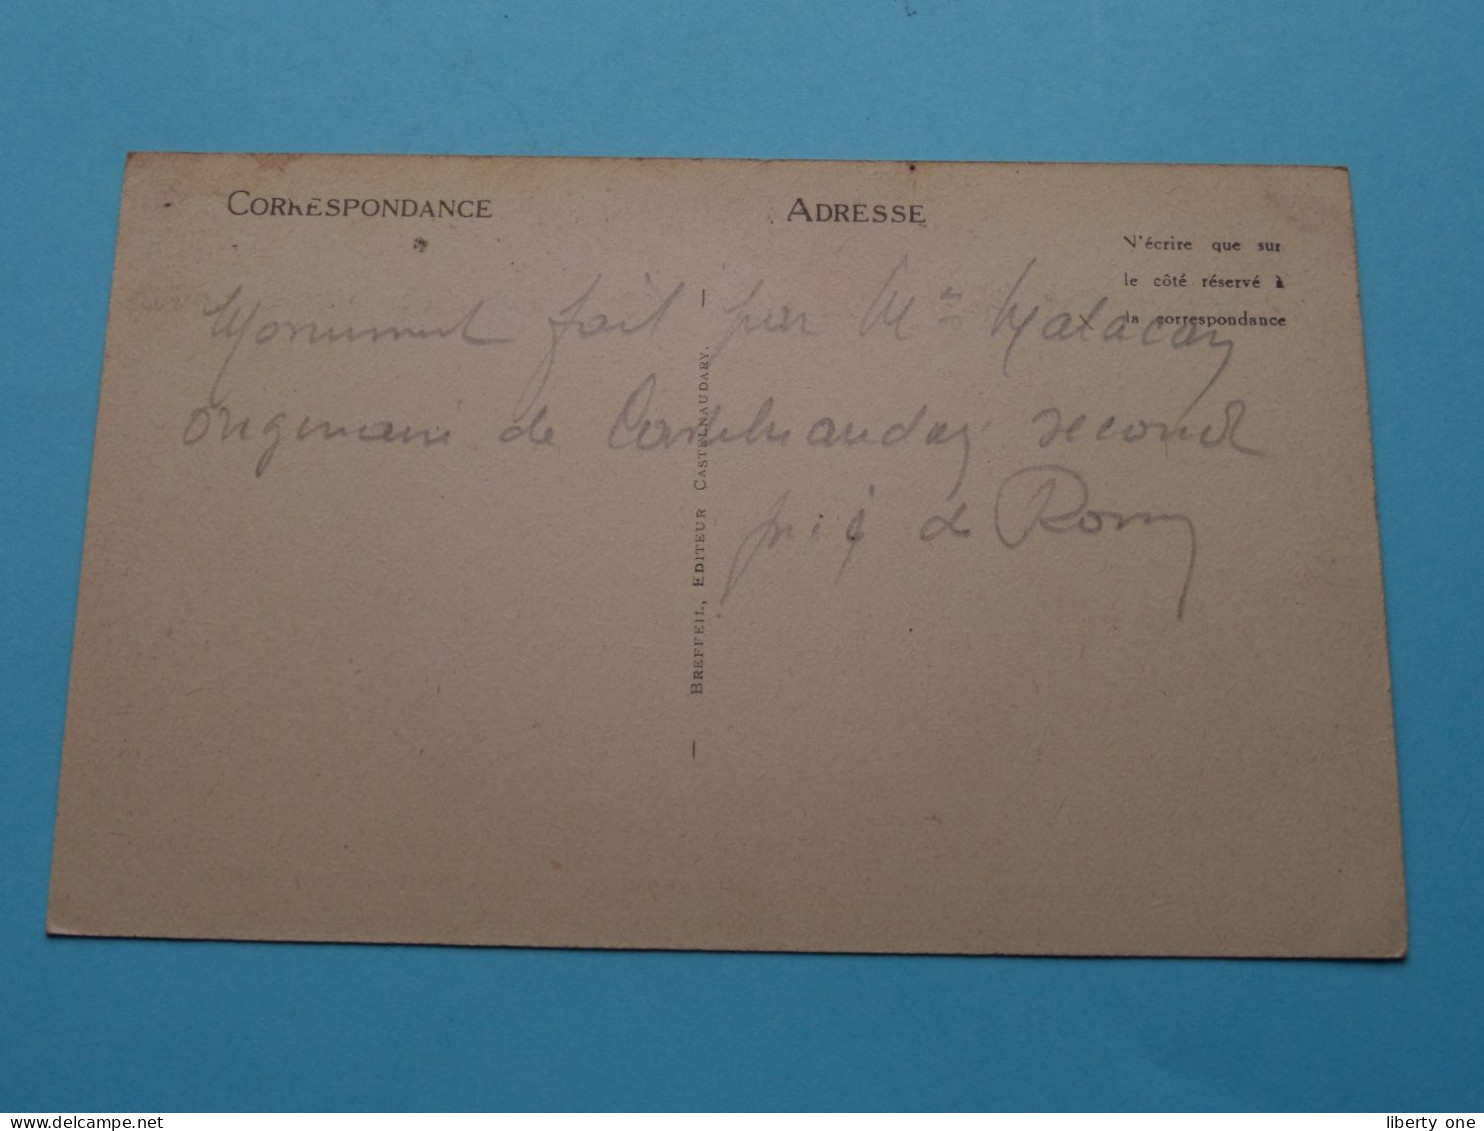 CORRESPONDANCE
ADRESSE
N'écrire que sur
le côté réservé à
la correspondance
Monument fait par Mr Malacan
originaire de Castelnaudary second
prix de Rome
BREFFEIL, EDITEUR CASTELNAUDARY.
delcampe.net
liberty one